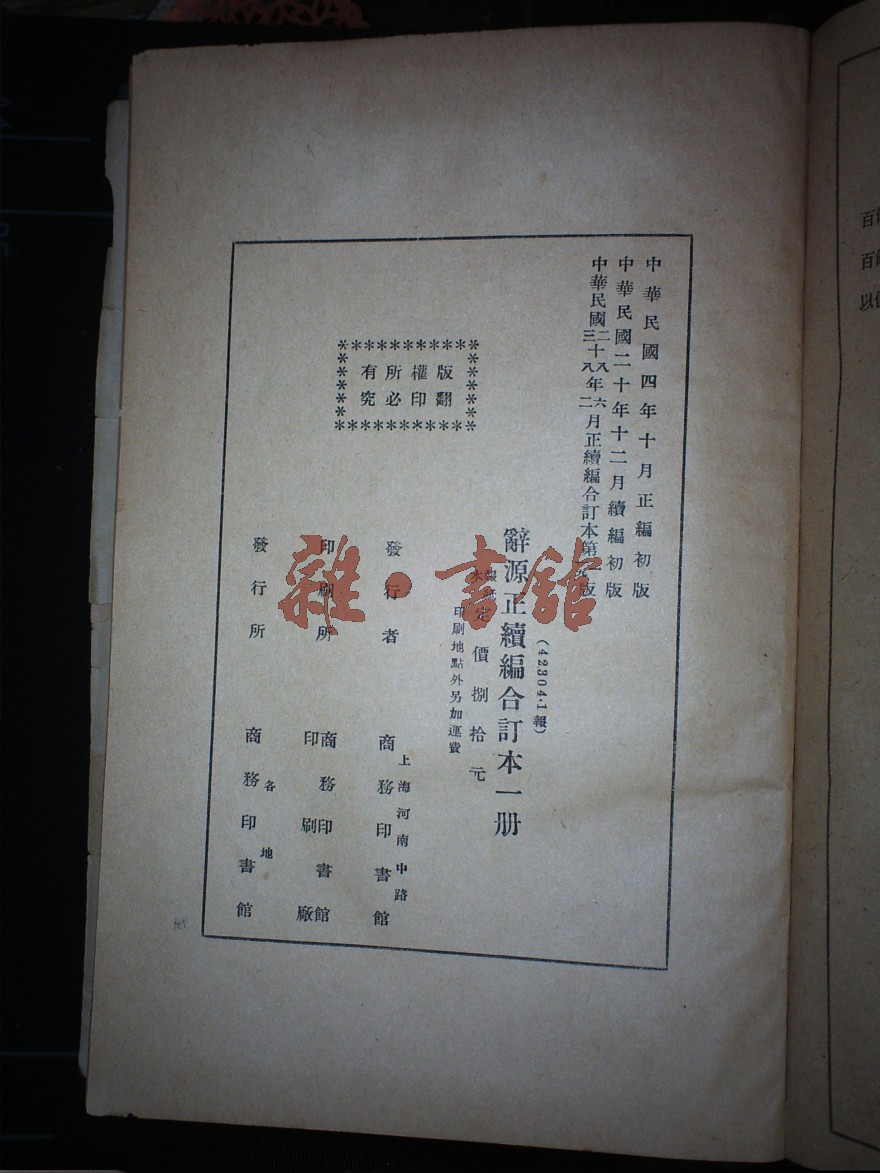 中華民國四年十月正編初版
中華民國二十年十二月續編初版
中華民國二三十八八年六二月正續編合訂本第版
版權所有
翻印必究
(42304·1報)
辭源正續編合訂本一册
定價捌拾元
印刷地點外另加運費
發行者
上海河南中路
商務印書館
印刷所
商務印書館
印刷廠
發行所
各地
商務印書館
雜·書館
百
百
以